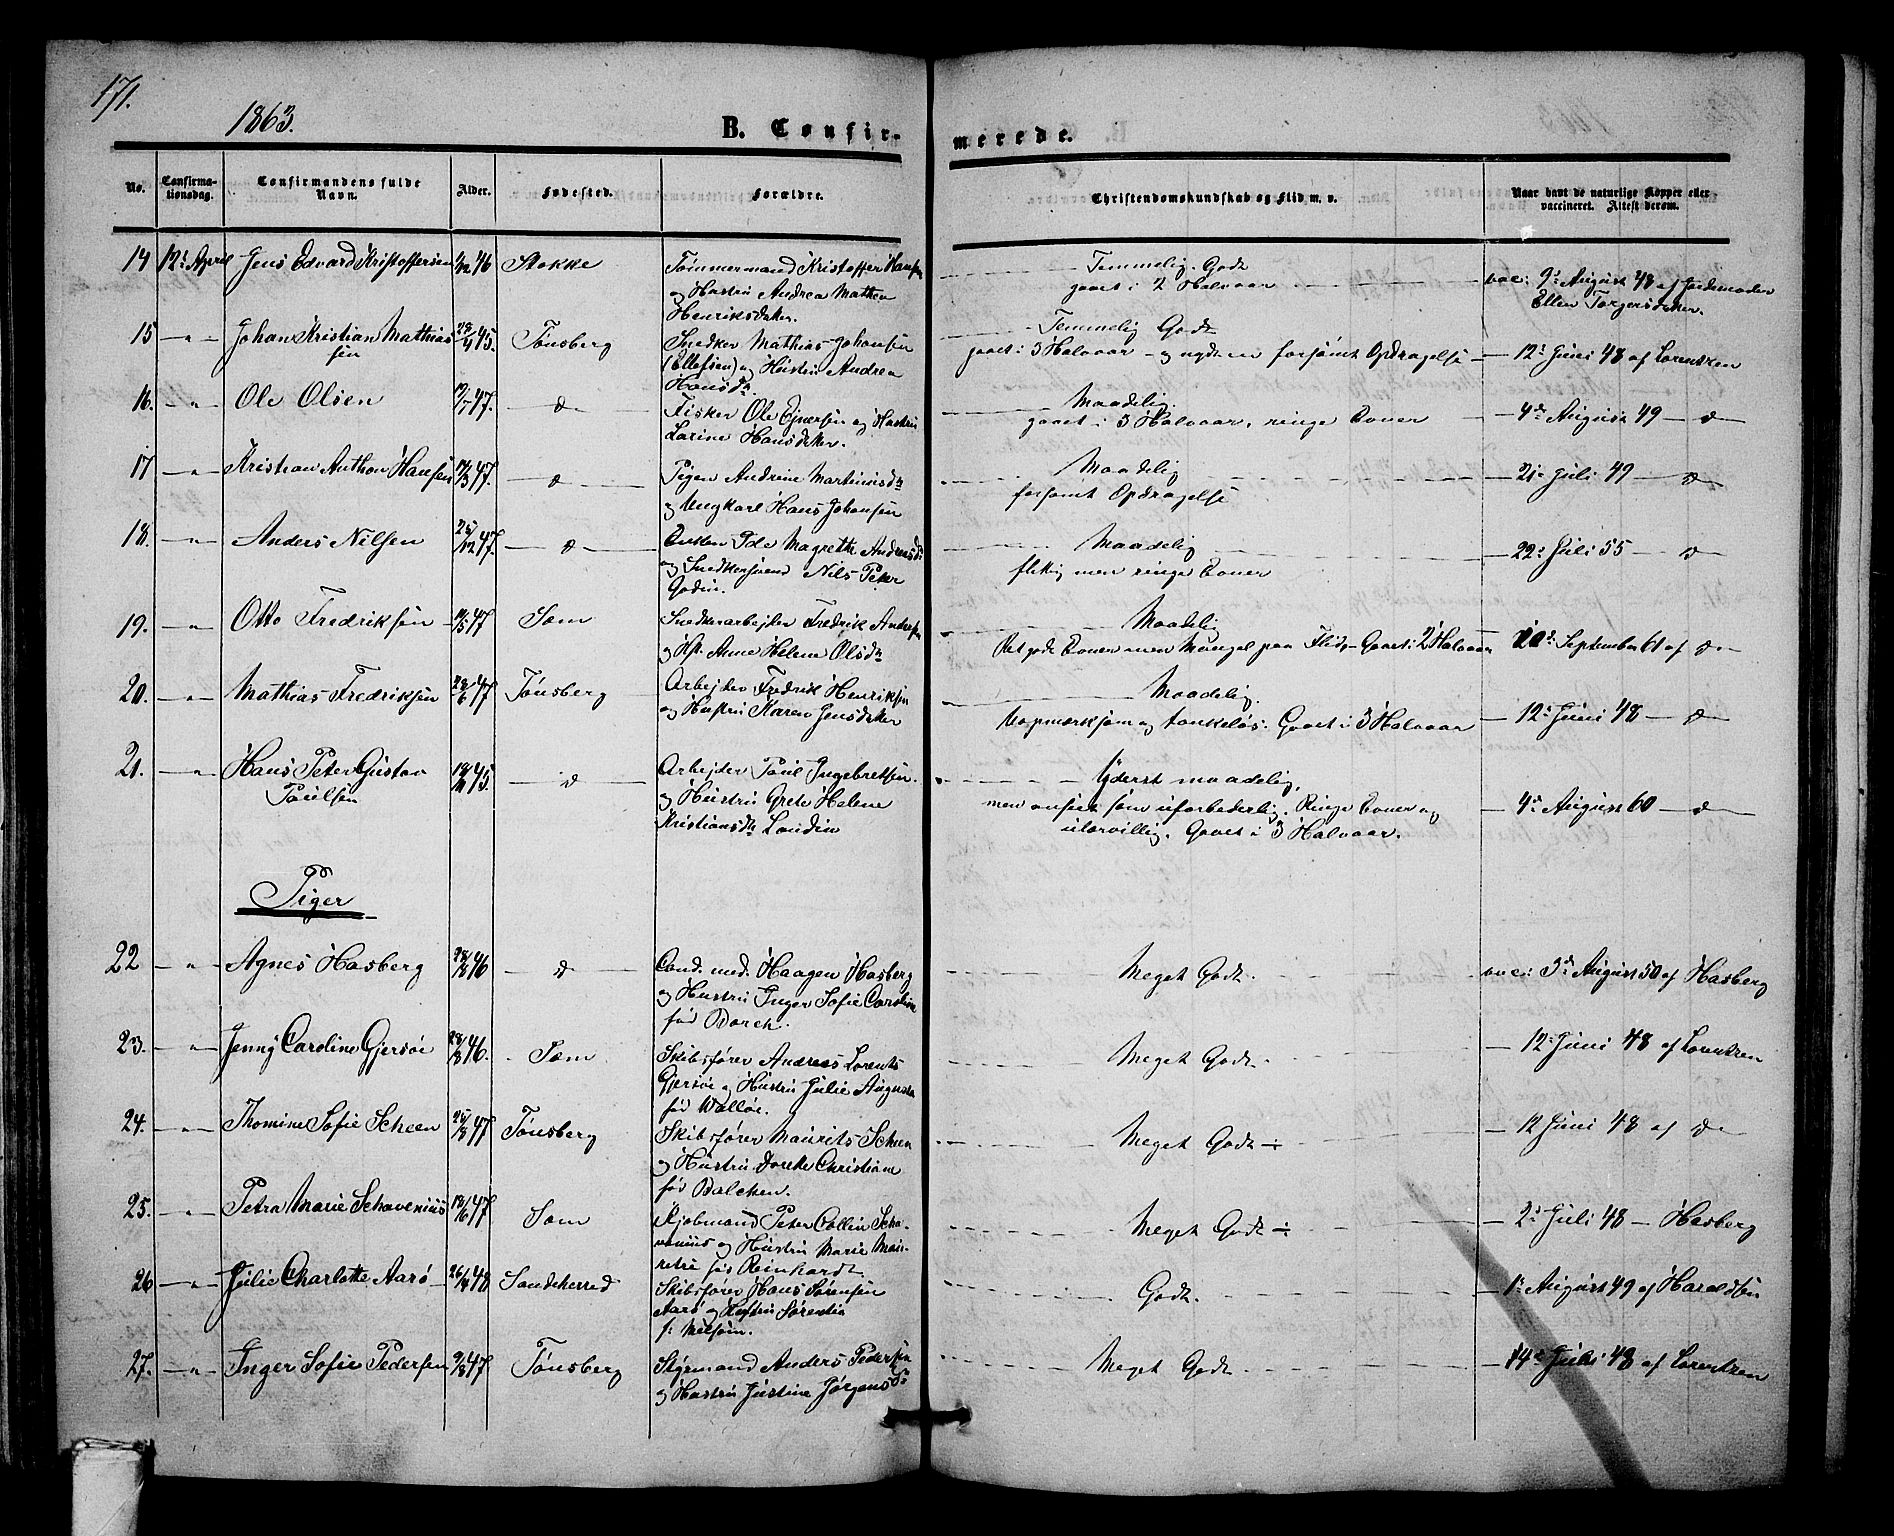 171.
1863.
B. Confir-
merede.
No.
Confirma-
tionsdag.
Confirmandens fulde
Navn.
Alder.
Fødested.
Forældre.
Christendomskundskab og Flid m. v.
Naar havt de naturlige Kopper eller
vaccineret. Attest derom.
14 12te April Jens Edvard Kristoffersen 46 Stokke Tømmermand Kristoffer Hansen
og Hustru Andrea Mathea
Henriksdatter.
Temmelig Godt
gaaet i 2 Halvaar
vac: 9de August 48 af Jordemoder
Ellen Torgersdatter.
15 - " - Johan Kristian Mathias
sen 45. Tønsberg Snedker Mathias Johansen
(Ellefsen) og Hustru Andrea
Hansdr
Temmelig Godt
gaaet i 3 Halvaar - og nydt en forsømt Opdragelse - 12te Juni 48 af Lorentzen
16. - " - Ole Olsen 47. - d - Fisker Ole Ejnersen og Hustru
Larine Hansdatter.
Maadelig
gaaet i 3 Halvaar, ringe Evner - 4de August 49 - d
17 - " - Kristian Anthon Hansen 47. - d - Pigen Andrine Martinusdr
og Ungkarl Hans Johansen
Maadelig
forsømt Opdragelse
- 21de Juli 49 - d
18. - " - Anders Nilsen 25/12 47. - d - Enken Ide Magrethe Andersdr
og Snedkersvend Nils Peter
Godin.
Maadelig
flittig men ringe Evner
22de Juli 55 - d
19. - " - Otto Fredriksen 47 Sem Snedkerarbejder Fredrik Andersen
og Hst. Anne Helene Olsdr
Maadelig
Ret gode Evner men Mangel paa Flid - Gaaet i 2 Halvaar September 61 af d
20. - " - Mathias Fredriksen 28/6 47 Tønsberg Arbejder Fredrik Henriksen
og Hustru Karen Jensdatter
Maadelig.
Uopmærksom og tankeløs. Gaaet i 3 Halvaar - 12te Juni 48 - d
21. - " - Hans Peter Gustav
Paulsen 45. - d - Arbejder Paul Ingebretsen
og Hustru Grete Helene
Kristiansdr Londin
Yderst maadelig,
men anseet som uforbederlig. Ringe Evner og
utærvillig. Gaaet i 3 Halvaar.
- 4de August 60 - d
Piger
22 - " - Agnes Hasberg 46 - d - Cand. med. Haagen Hasberg
og Hustru Inger Sofie Caroline
fød Borch.
Meget Godt. vac: 3de August 50 af Hasberg
23. - " - Jenny Caroline Gjersøe 28/8 46. Sem Skibsfører Andreas Lorents
Gjersøe og Hustru Julie Augusta
fød Walløe.
Meget Godt. - 12te Juni 48 af Lorentzen
24. - " - Thomine Sofie Scheen 25/8 47 Tønsberg Skibsfører Maurits Scheen
og Hustru Dorthe Christiane
fød Balchen.
Meget Godt ÷ - 12 Juni 48 af d
25. - " - Petra Marie Schavenius 47 Sem Kjøbmand Peter Collin Scha-
venius og Hustru Marie Mar-
retre fød Reinhardt.
Meget Godt ÷ - 2de Juli 48 - Hasberg
26 - " - Julie Charlotte Aarø 48 Sandeherred Skibsfører Hans Sørensen
Aarø og Hustru Sørentia
f: Melsom.
Godt. 1ste August 49 af Haraldsen
27. - " - Inger Sofie Pedersen 9/8 47 Tønsberg Styrmand Anders Pedersen
og Hustru Justine Jørgensdr
Meget Godt. - 14de Juli 48 af Lorentzen